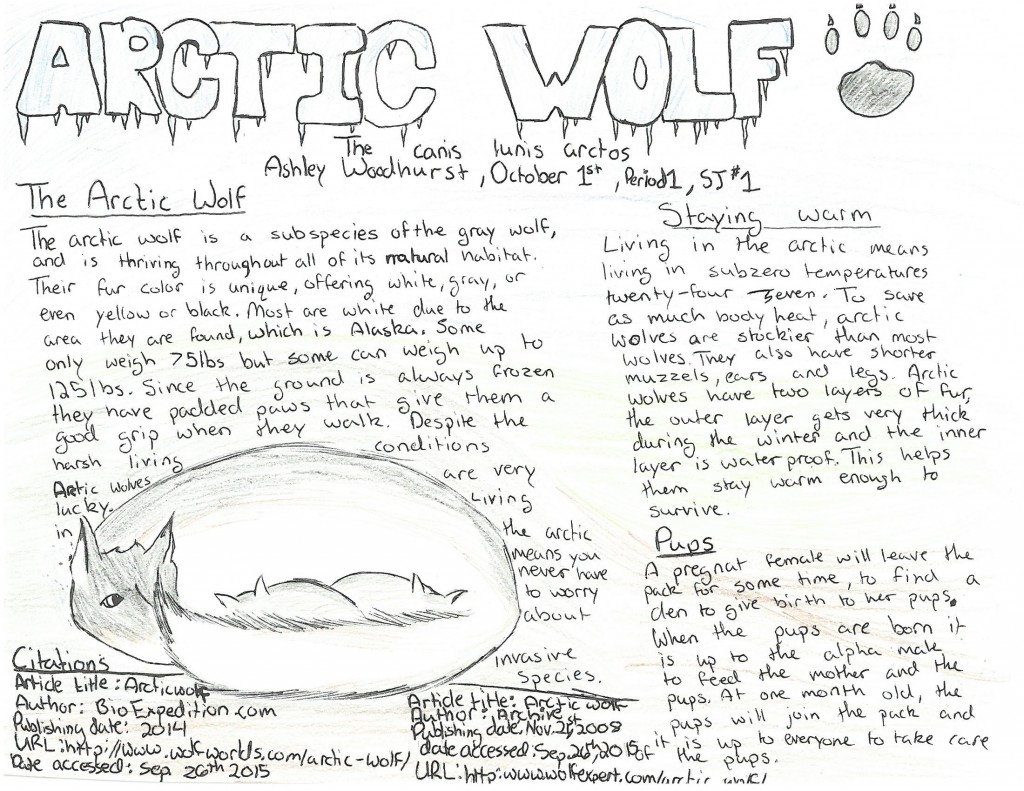 ARCTIC WOLF
The canis lunis arctos
Ashley Woodhurst, October 1st, Period 1, SJ #1
The Arctic Wolf
The arctic wolf is a subspecies of the gray wolf,
and is thriving throughout all of its natural habitat.
Their fur color is unique, offering white, gray, or
even yellow or black. Most are white due to the
area they are found, which is Alaska. Some
only weigh 75lbs but some can weigh up to
125lbs. Since the ground is always frozen
they have padded paws that give them a
good grip when they walk. Despite the
harsh living conditions
Arctic wolves are very
lucky. Living
in the arctic
means you
never have
to worry
about
invasive
species.
Staying warm
Living in the arctic means
living in subzero temperatures
twenty-four seven. To save
as much body heat, arctic
wolves are stockier than most
wolves. They also have shorter
muzzels, ears and legs. Arctic
wolves have two layers of fur,
the outer layer gets very thick
during the winter and the inner
layer is water proof. This helps
them stay warm enough to
survive.
Pups
A pregnat female will leave the
pack for some time, to find a
den to give birth to her pups.
When the pups are born it
is up to the alpha male
to feed the mother and the
pups. At one month old, the
pups will join the pack and
it is up to everyone to take care
of the pups.
Citations
Article title: Arcticwolf
Author: BioExpedition.com
Publishing date: 2014
URL: http://www.wolf-worlds.com/arctic-wolf/
Date accessed: Sep 26th 2015
Article title: Arctic wolf
Author: Archives
Publishing date, Nov. 21st 2008
date accessed: Sep, 26th, 2015
URL: http:www.wolfexpert.com/arctic-wolf/